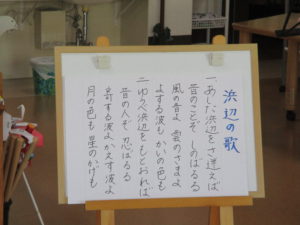 浜辺の歌
一、あした浜辺をさ迷えば
昔のことぞ しのばるる
風の音よ 雲のさまよ
よする波も かいの色も
二、ゆうべ浜辺をもとおれば
昔の人ぞ 忍ばるる
寄する波よ かえす波よ
月の色も 星のかげも